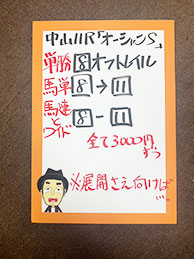 中山11R「オーシャンS」
単勝 8 オフトレイル
馬単 8→11
馬連とワイド 8-11
全て3000円ずつ
※展開さえ向けば…